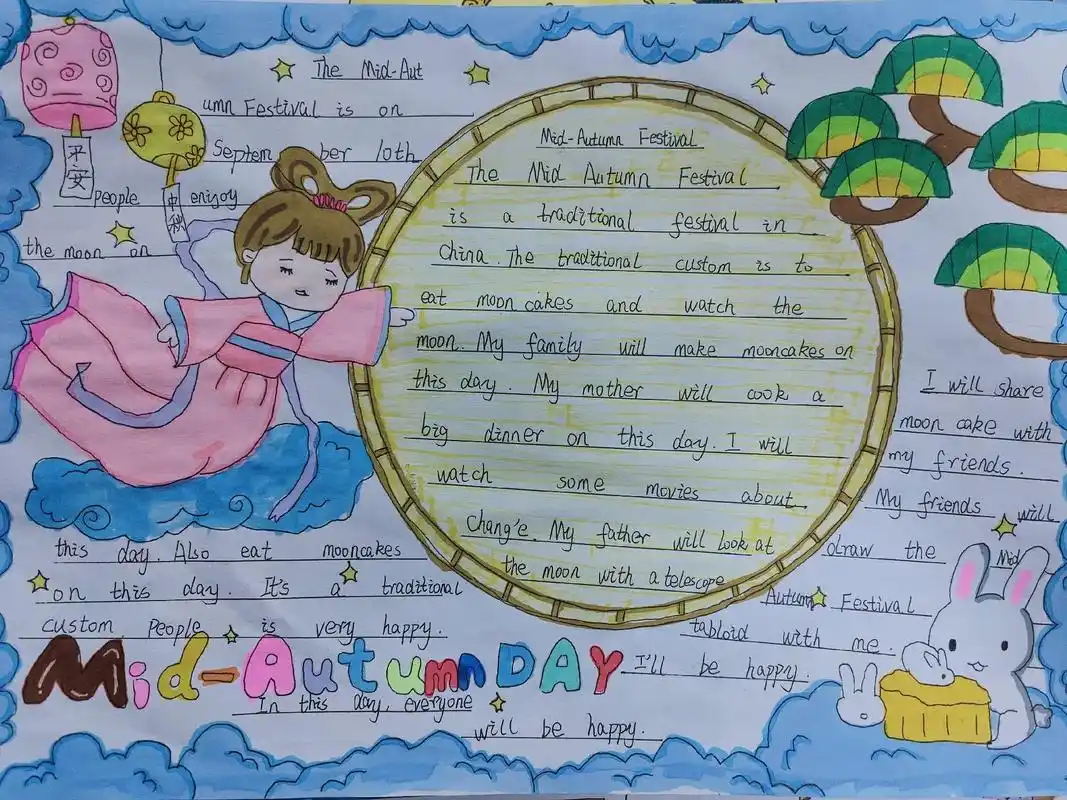 The Mid-Aut
umn Festival is on
Septem ber 10th
people enjoy
the moon on
this day. Also eat mooncakes
on this day. It's a traditional
custom People is very happy.
平安
中秋
Mid-Autumn Festival
The Mid Autumn Festival
is a traditional festival in
China. The traditional custom is to
eat moon cakes and watch the
moon. My family will make mooncakes on
this day. My mother will cook a
big dinner on this day. I will
watch some movies about
Chang'e. My father will look at
the moon with a telescope
I will share
moon cake with
my friends.
My friends will
draw the Mid
Autumn Festival
tabloid with me.
I'll be happy.
Mid-Autumn DAY
In this day, everyone
will be happy.